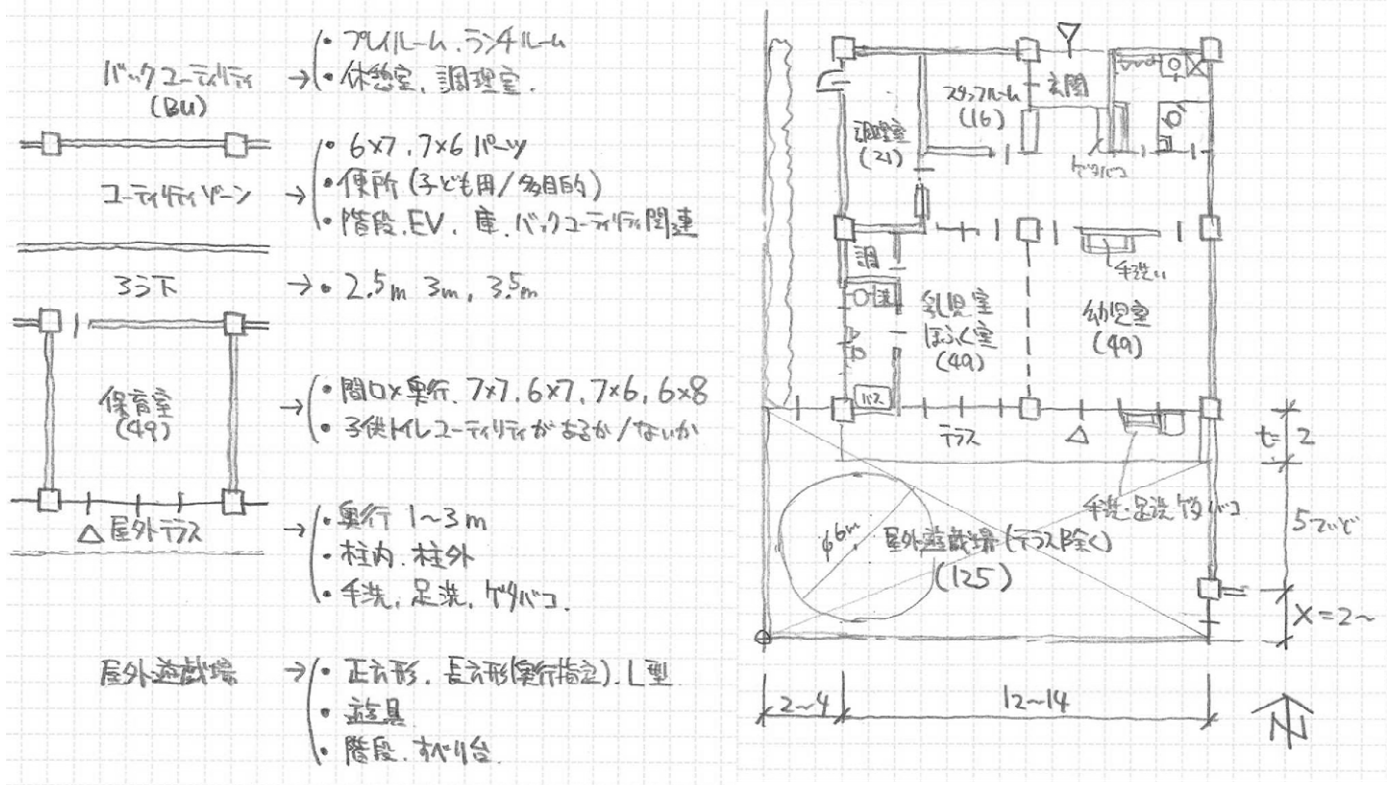 バックユーティリティ
(BU)
→
・プレイルーム、ランチルーム
・休憩室、調理室.
ユーティリティゾーン
→
・6×7, 7×6 パーツ
・便所 (子ども用/多目的)
・階段、EV、庫、バックユーティリティ関連
ろう下
→・2.5m 3m, 3.5m
保育室
(49)
→
・間口×奥行. 7×7, 6×7, 7×6, 6×8
・子供トイレユーティリティがあるか/ないか
△屋外テラス
→
・奥行 1~3m
・柱内、柱外
・手洗、足洗、ゲタバコ.
屋外遊戯場
→
・正方形、長方形(奥行指定)、L型
・遊具
・階段、すべり台
玄関
スタッフルーム
(16)
調理室
(21)
ゲタバコ
調
手洗い
洗
乳児室
ほふく室
(49)
幼児室
(49)
バス
テラス
△
t=2
手洗・足洗 ゲタバコ
φ6m
屋外遊戯場(テラス除く)
(125)
5ていど
X=2~
2~4
12~14
N